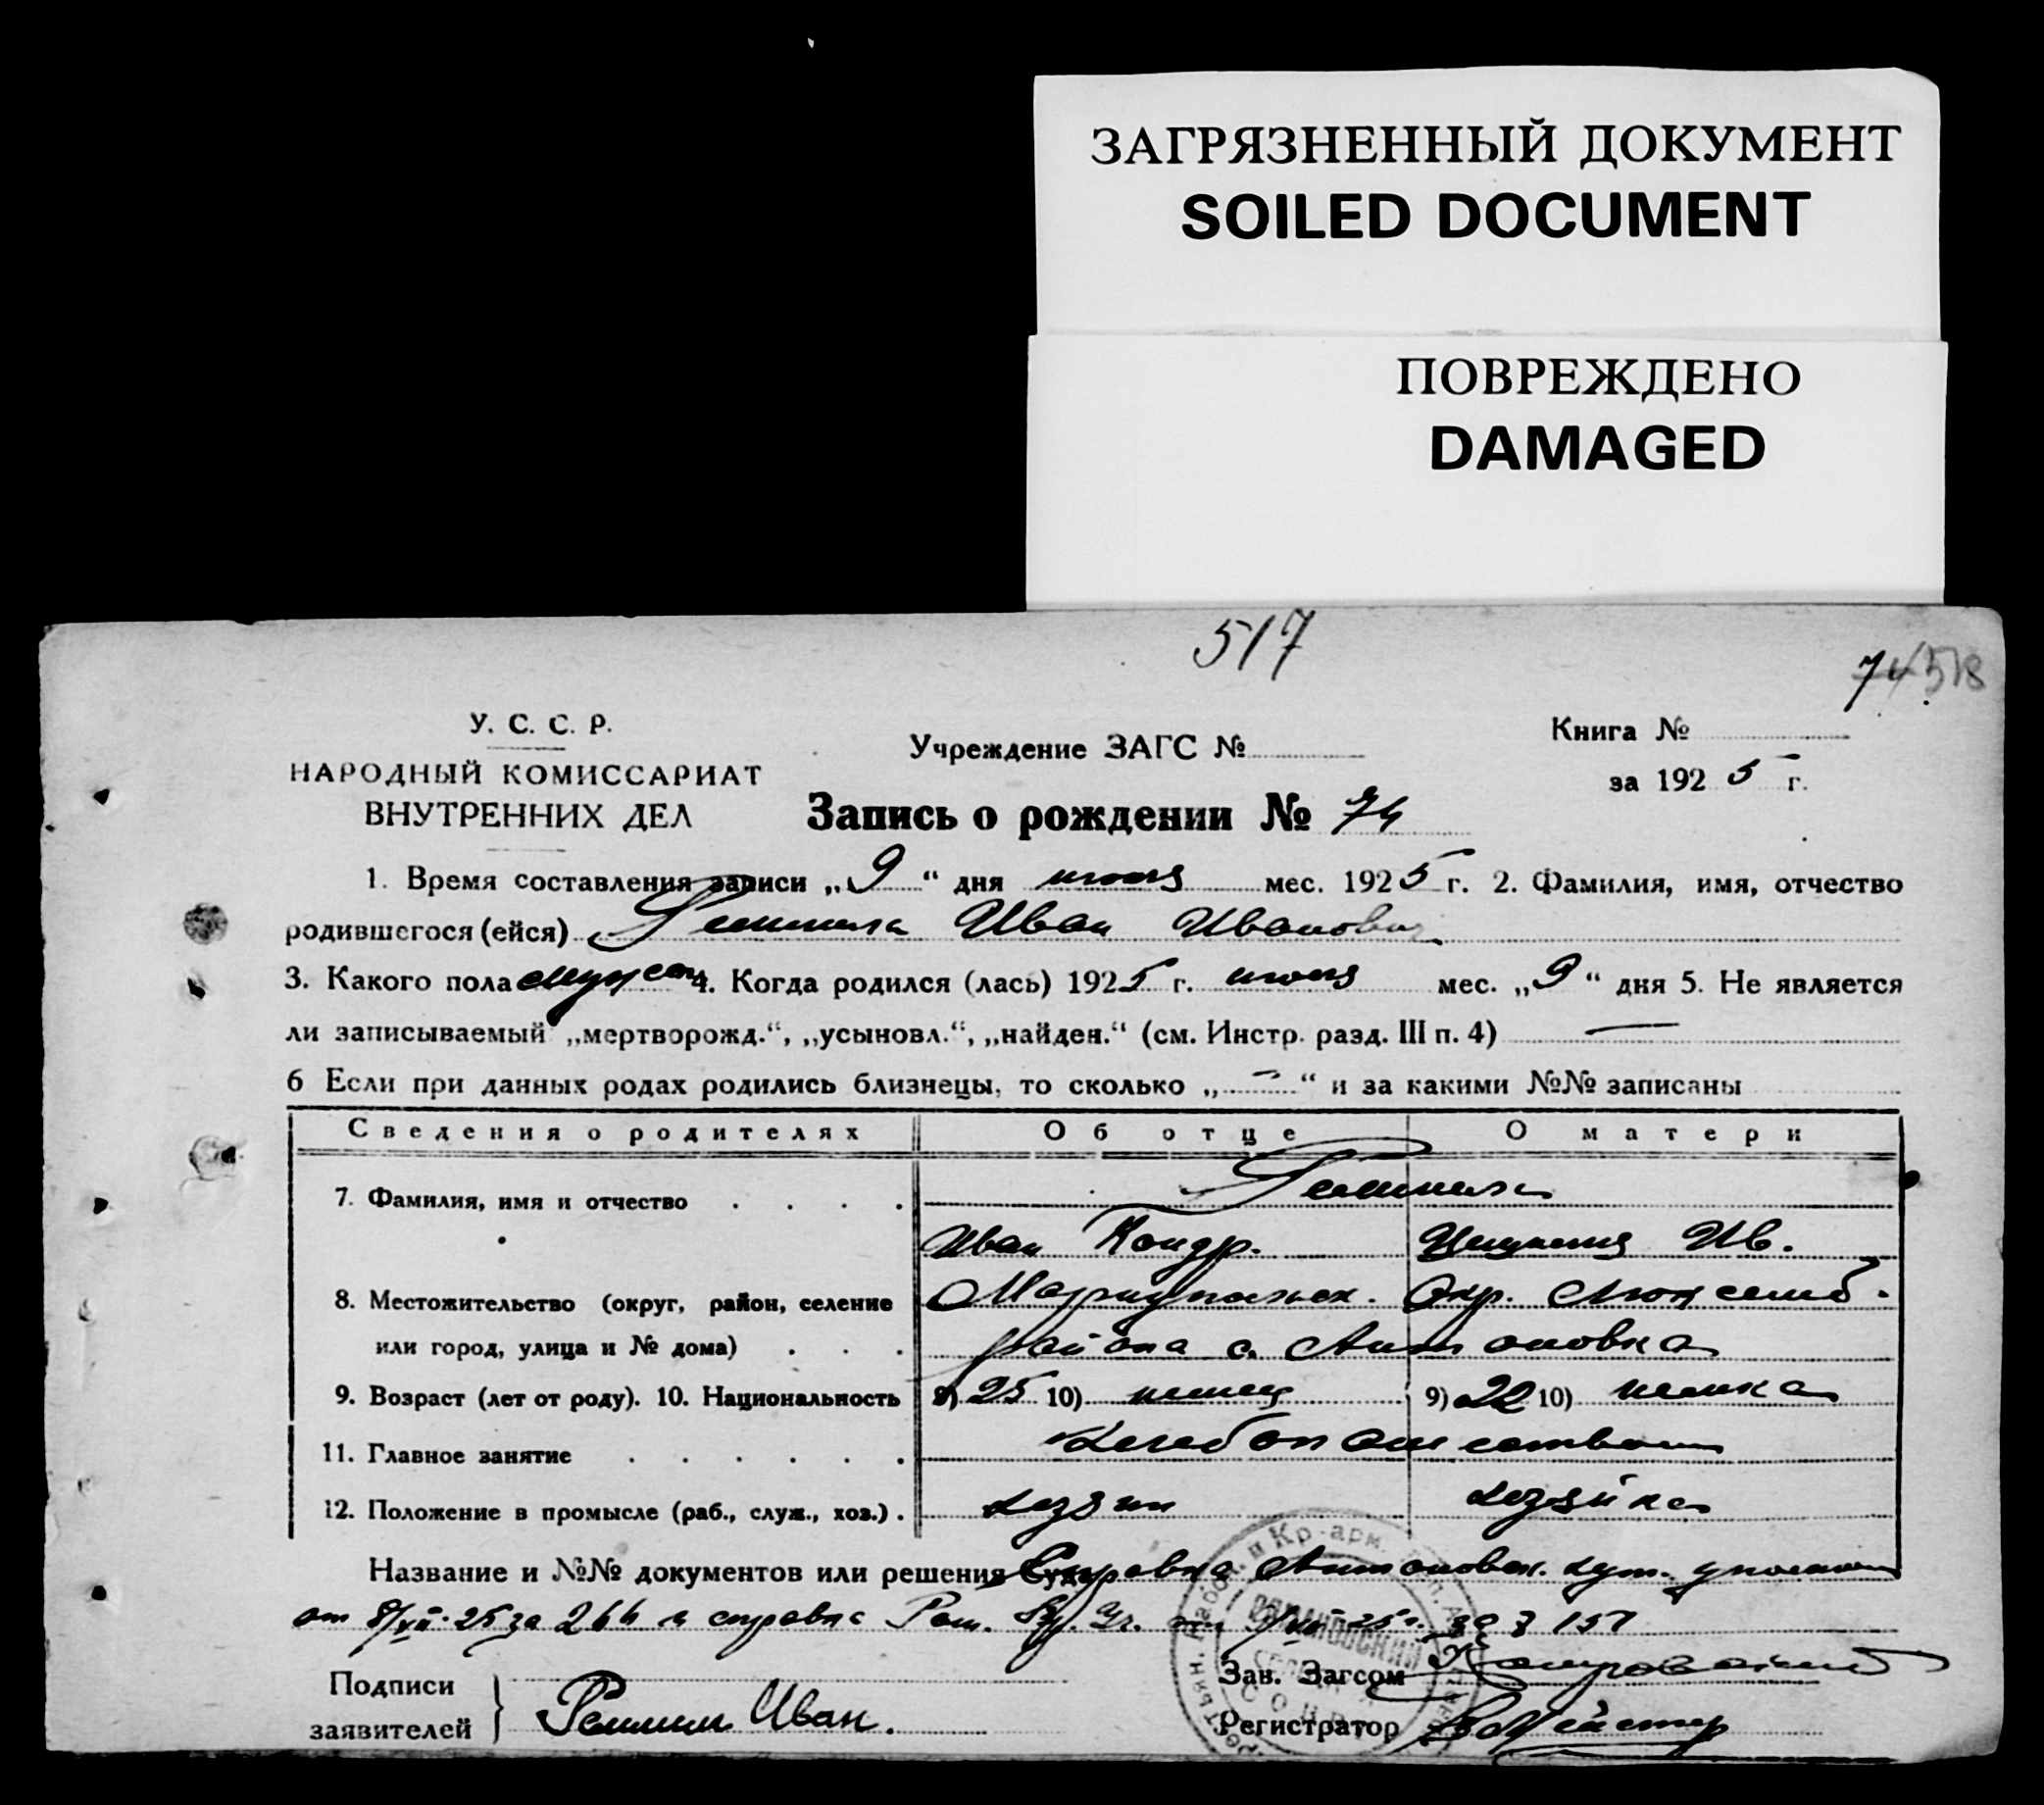 ЗАГРЯЗНЕННЫЙ ДОКУМЕНТ
SOILED DOCUMENT
ПОВРЕЖДЕНО
DAMAGED
517
74 518
У. С. С. Р.
НАРОДНЫЙ КОМИССАРИАТ
ВНУТРЕННИХ ДЕЛ
Учреждение ЗАГС №
Книга №
за 1925 г.
Запись о рождении № 74
1. Время составления записи „9“ дня мес. 1925 г. 2. Фамилия, имя, отчество
родившегося (ейся) Иван Иванович
3. Какого пола муж 4. Когда родился (лась) 1925 г. мес. „9“ дня 5. Не является
ли записываемый „мертворожд.“, „усыновл.“, „найден.“ (см. Инстр. разд. III п. 4) —
6 Если при данных родах родились близнецы, то сколько „—“ и за какими №№ записаны
Сведения о родителях Об отце О матери
7. Фамилия, имя и отчество
Иван Кондр. Ив.
8. Местожительство (округ, район, селение Мариупольск. Окр. Люксемб.
или город, улица и № дома) района с. Антоновка
9. Возраст (лет от роду). 10. Национальность 9) 25 10) немец 9) 22 10) немка
11. Главное занятие хлебопашество
12. Положение в промысле (раб., служ., хоз.) хозяин хозяйка
Название и №№ документов или решения Суда Справка Антоновск. хут.
от 8/VII-25 за 266 и справка 25 г. за 157
Подписи
заявителей } Иван.
Зав. Загсом
Регистратор